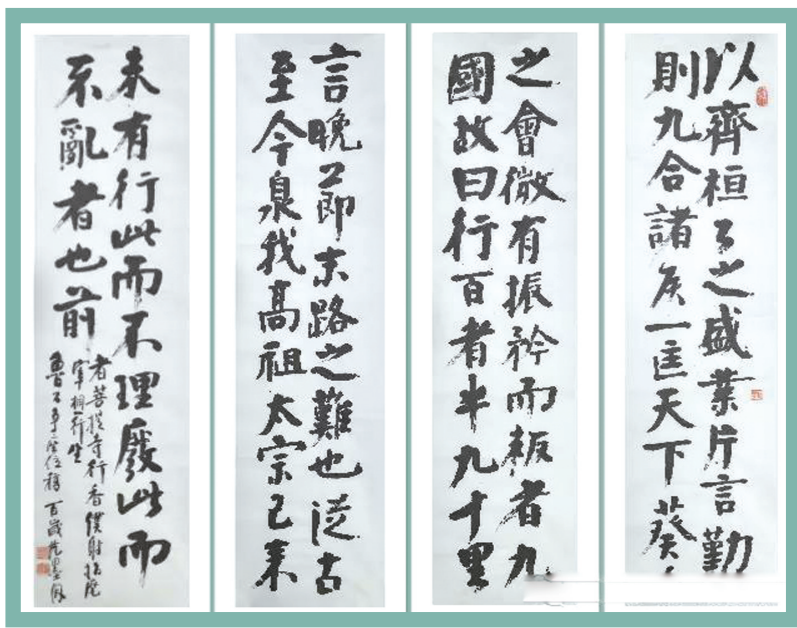 以齊桓公之盛業片言勤
則九合諸侯一匡天下葵
之會微有振矜而叛者九
國故曰行百者半九十里
言晚節末路之難也從古
至今泉我高祖太宗已來
未有行此而不理廢此而
不亂者也前
者菩提寺行香僕射指麾
宰相行坐
魯公争座位稿 百歲